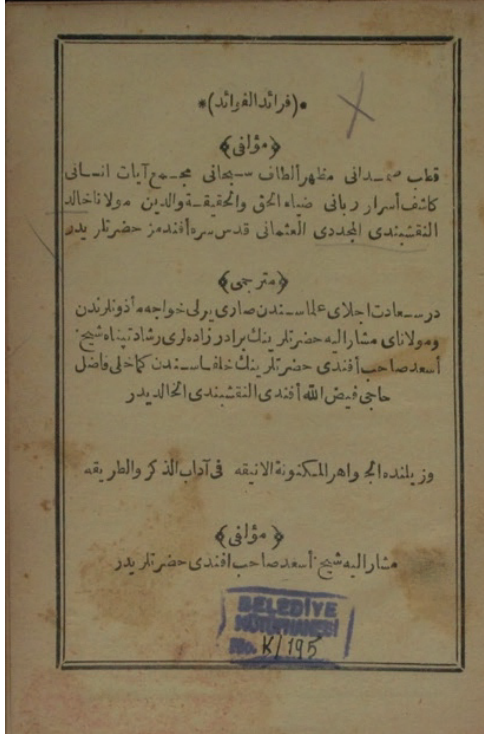 *(فرائد الفوائد)*
﴿مؤلفى﴾
قطب صمدانى مظهر ألطاف سبحانى مجمع آيات انسانى
كاشف أسرار ربانى ضياء الحق والحقيقة والدين مولانا خالد
النقشبندى المجددى العثمانى قدس سره أفندمز حضرتلريدر
﴿مترجمى﴾
درسعادت اجلاى علماسندن صارى يرلى خواجه مأذونلرندن
ومولاناى مشار اليه حضرتلرينك برادر زاده لرى رشادتپناه شيخ
أسعد صاحب أفندى حضرتلرينك خلفاسندن كماخلى فاضل
حاجى فيض الله أفندى النقشبندى الخالديدر
وزيلنده الجواهر المكنونة الانيقه فى آداب الذكر والطريقه
﴿مؤلفى﴾
مشار اليه شيخ أسعد صاحب افندى حضرتلريدر
BELEDİYE
KÜTÜPHANESİ
No. K/195